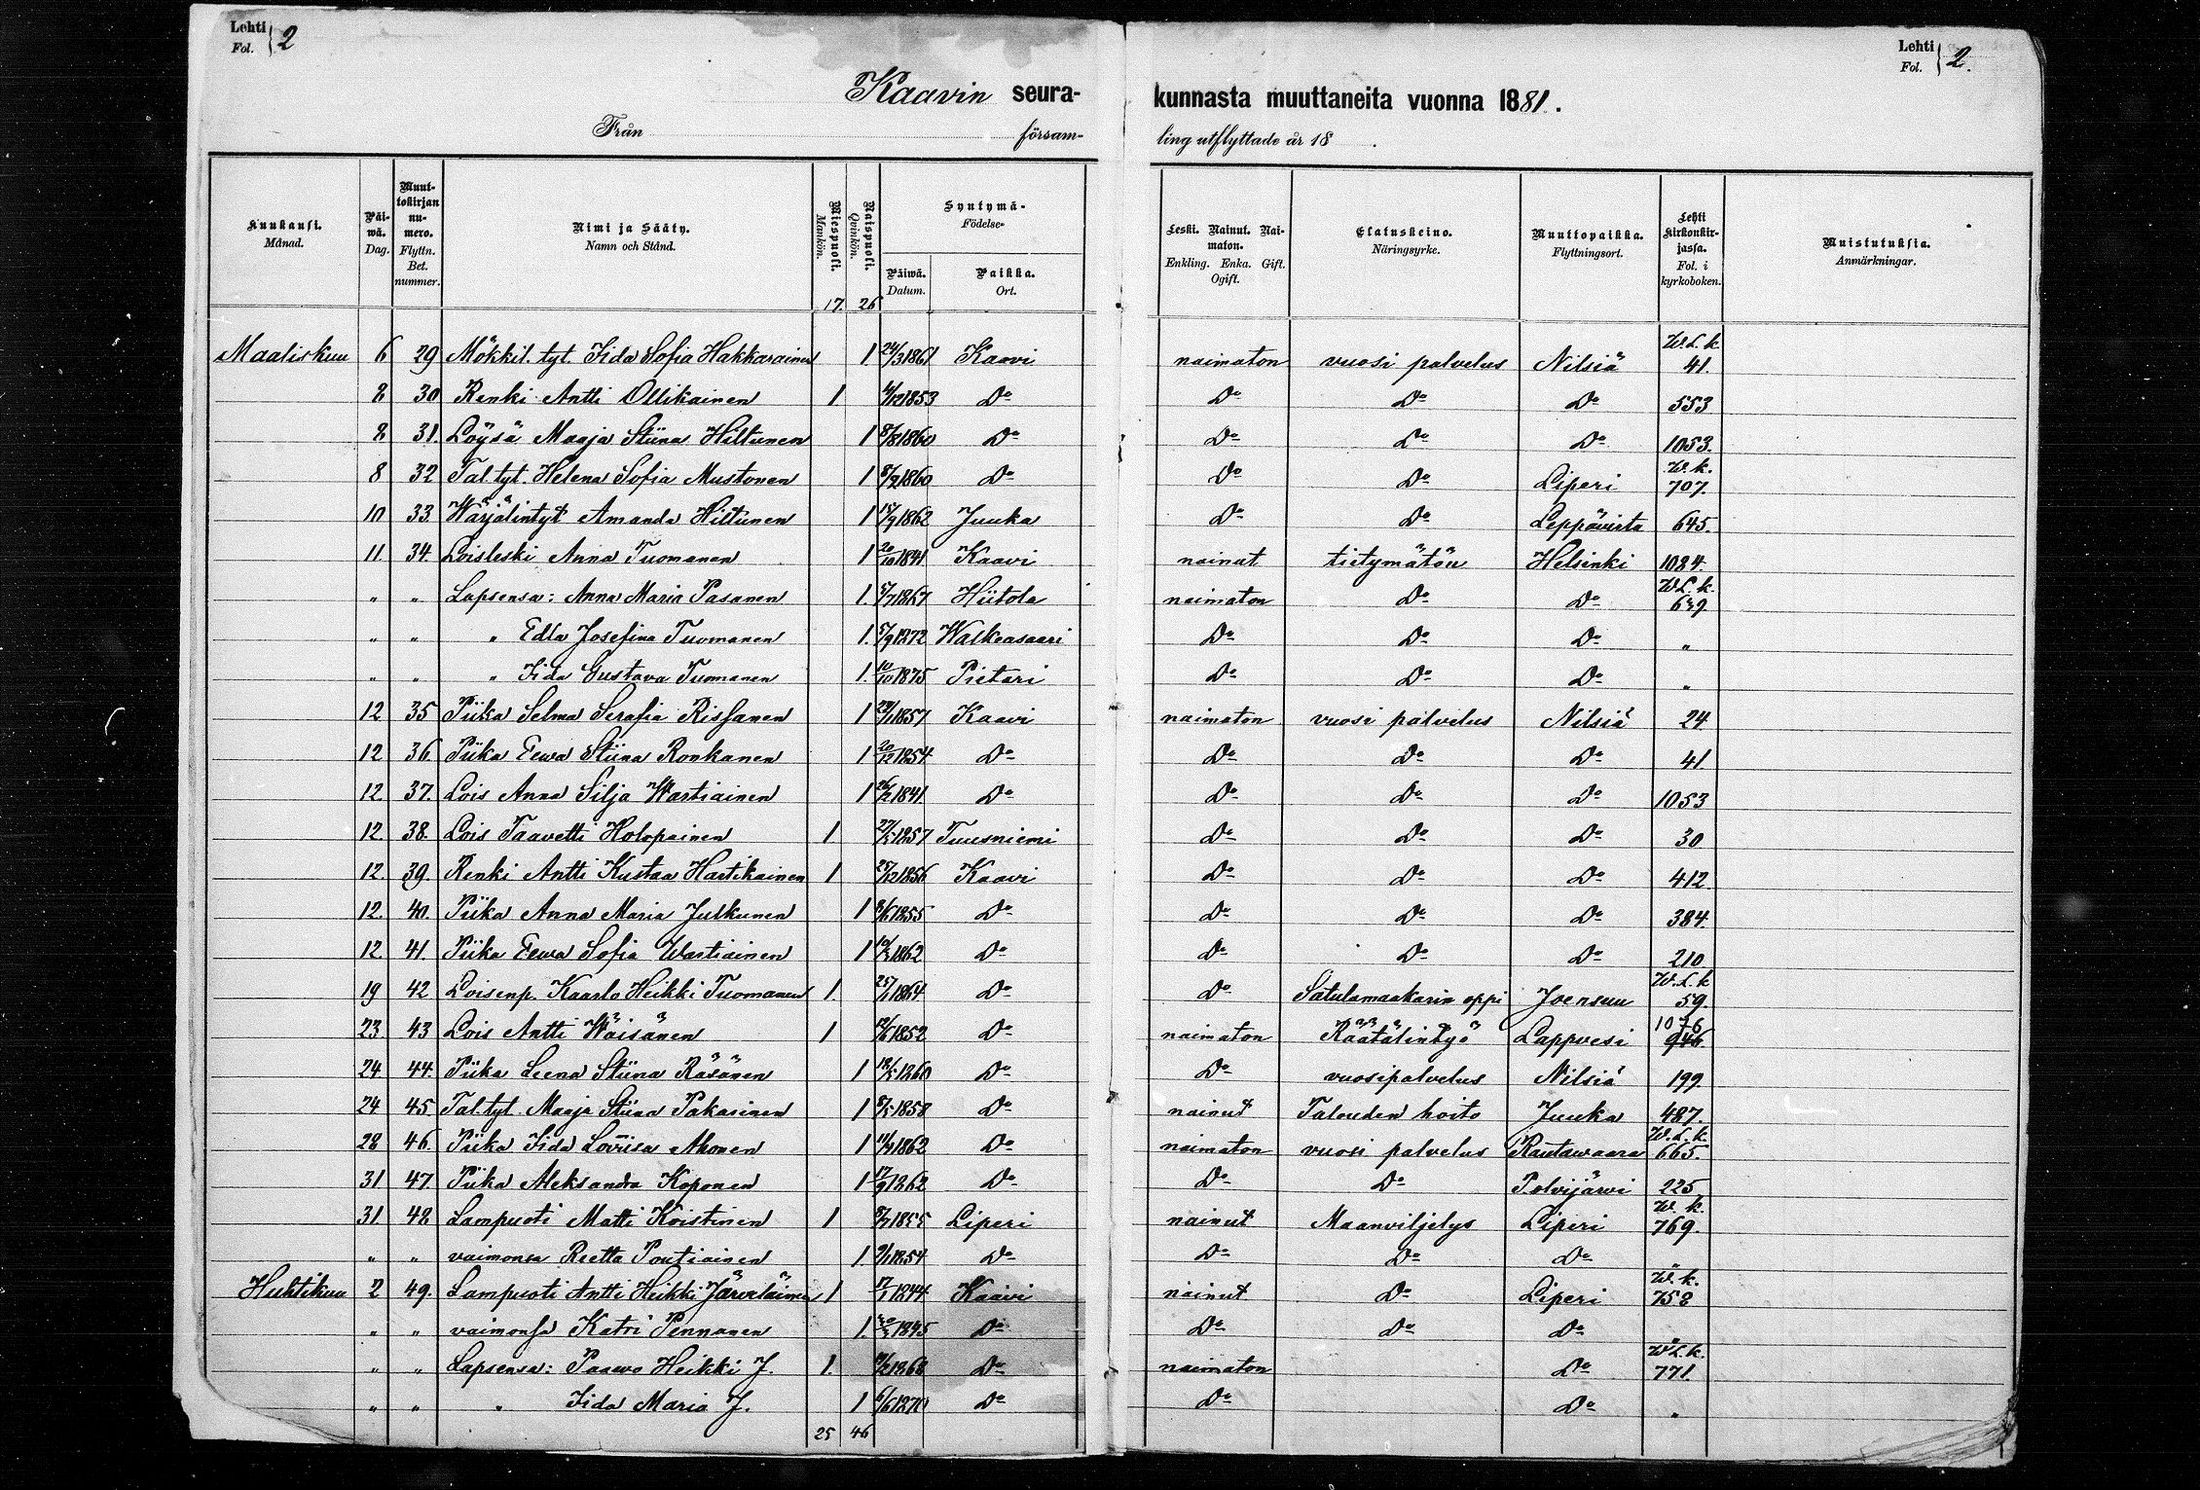 Lehti Fol. 2
Lehti Fol. 2.
Kaavin seura- kunnasta muuttaneita vuonna 1881.
Från försam- ling utflyttade år 18 .
Kuukausi. Månad. Päiwä. Dag. Muuttokirjan numero. Flyttn. Bet. nummer. Nimi ja Sääty. Namn och Stånd. Miespuoli. Mankön. Naispuoli. Qvinkön. Syntymä- Födelse- Päiwä. Datum. Paikka. Ort. Leski. Nainut. Naimaton. Enkling. Enka. Gift. Ogift. Elatuskeino. Näringsyrke. Muuttopaikka. Flyttningsort. Lehti kirkonkirjassa. Fol. i kyrkoboken. Muistutuksia. Anmärkningar.
17. 26
Maaliskuu 6 29 Mökkil. tyt. Iida Sofia Hakkarainen 1. 24/3 1861 Kaavi naimaton vuosi palvelus Nilsiä W.L.k. 41.
8 30 Renki Antti Ollikainen 1 4/12 1853 Do Do Do Do 553
8 31. Löysä Maaja Stiina Hiltunen 1 8/8 1860 Do Do Do Do 1053.
8 32 Tal. tyt. Helena Sofia Mustonen 1 8/9 1860 Do Do Do Liperi W.k. 707.
10 33. Wärjälintyt Amanda Hiltunen 1 1862 Juuka Do Do Leppävirta 645.
11. 34. Loisleski Anna Tuomanen 1 20/10 1841 Kaavi nainut tietymätön Helsinki 1084.
" " Lapsensa: Anna Maria Pasanen 1. 5/7 1867 Hiitola naimaton Do Do W.L.k. 639
" " " Edla Josefina Tuomanen 1. 5/9 1872 Walkeasaari Do Do Do "
" " " Iida Gustava Tuomanen 1. 10/10 1875 Pietari Do Do Do "
12 35 Piika Selma Serafia Rissanen 1 1857 Kaavi naimaton vuosi palvelus Nilsiä 24
12 36. Piika Eewa Stiina Ronkanen 1 20/12 1854 Do Do Do Do 41
12. 37. Lois Anna Silja Wartiainen 1 26/2 1841 Do Do Do Do 1053
12 38. Lois Taavetti Holopainen 1 1857 Tuusniemi Do Do Do 30
12. 39. Renki Antti Kustaa Hartikainen 1 25/12 1856 Kaavi Do Do Do 412.
12. 40. Piika Anna Maria Julkunen 1 1855 Do Do Do Do 384.
12 41. Piika Eewa Sofia Wartiainen 1 1862 Do Do Do Do 210
19 42 Loisenp. Kaarlo Heikki Tuomanen 1. 1864 Do Do Satulamaakarin oppi Joensuu W.L.k 59.
23. 43 Lois Antti Wäisänen 1 1852 Do naimaton Räätälintyö Lappvesi 1076 946
24 44. Piika Leena Stiina Räsänen 1 1860 Do Do vuosipalvelus Nilsiä 199.
24 45 Tal. tyt. Maaja Stiina Pakarinen 1 1858 Do nainut Talouden hoito Juuka 487.
28 46. Piika Iida Loviisa Ahonen 1 1862 Do naimaton vuosi palvelus Rautawaara W.L.k. 665.
31 47. Piika Aleksandra Koponen 1 17/9 1862 Do Do Do Polvijärwi 225
31 48 Lampuoti Matti Koistinen 1 1855 Liperi nainut Maanviljelys Liperi W.k. 769.
" " vaimonsa Reetta Poutiainen 1. 1854 Do Do Do Do "
Huhtikuu 2 49. Lampuoti Antti Heikki Järveläinen 1 1844 Kaavi nainut Do Liperi W.k. 758
" " vaimonsa Katri Pennanen 1. 1845 Do Do Do Do "
" " Lapsensa: Paawo Heikki J. 1. 1868 Do naimaton Do W.L.k. 771.
" " " Iida Maria J. 1 6/6 1870 Do Do Do "
25 46